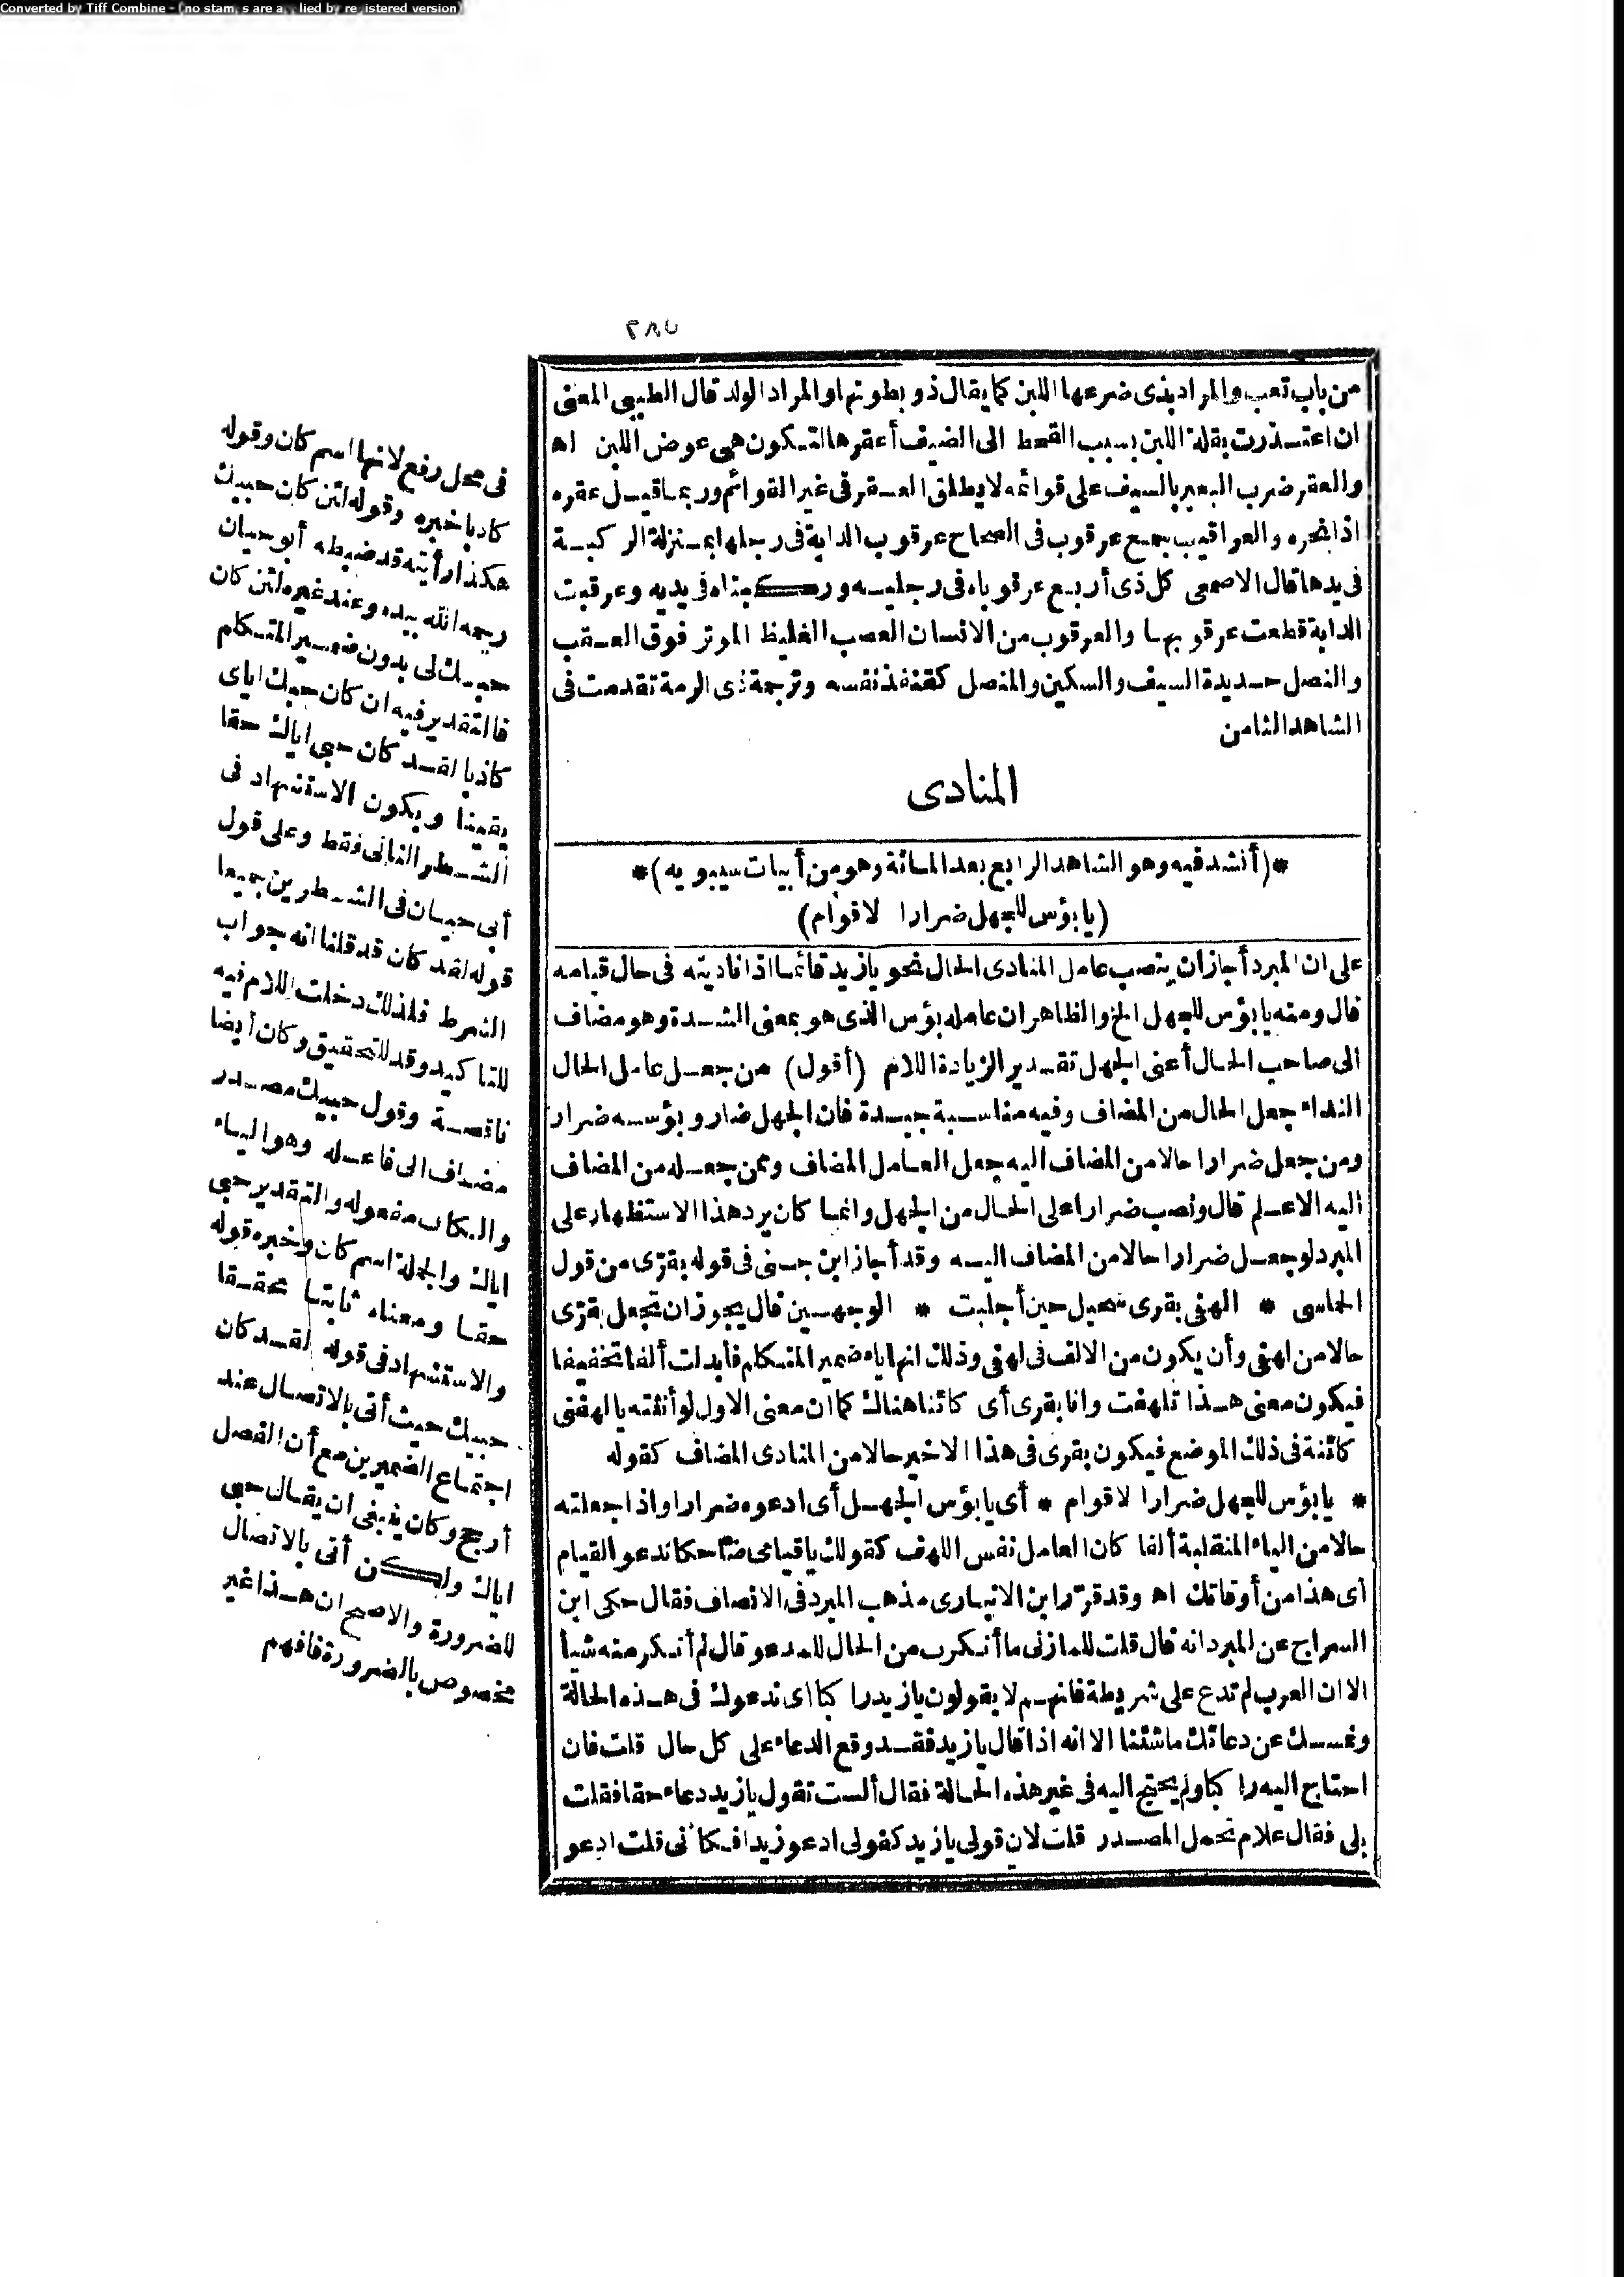 Converted by Tiff Combine - (no stamps are applied by registered version)
٢٨٥
من باب تعب والمراد بذى ضرعها اللبن كما يقال ذو بطونها والمراد الولد قال الطيبي المعنى
ان اعتذرت بقلة اللبن بسبب القحط الى الضيف أعقرها لتكون هى عوض اللبن اه
والعقر ضرب البعير بالسيف على قوائمه لا يطلق العقر فى غير القوائم وربما قيل عقره
اذا نحره والعراقيب جمع عرقوب فى الصحاح عرقوب الدابة فى رجلها بمنزلة الركبة
فى يدها قال الاصمعى كل ذى أربع عرقوباه فى رجليه وركبتاه فى يديه وعرقبت
الدابة قطعت عرقوبها والعرقوب من الانسان العصب الغليظ الموتر فوق العقب
والنصل حديدة السيف والسكين والمنصل كقنفذ نفسه وترجمة ذى الرمة تقدمت فى
الشاهد الثامن
المنادى
*(أنشد فيه وهو الشاهد الرابع بعد المائة وهو من أبيات سيبويه)*
(يا بؤس للجهل ضرارا لاقوام)
على ان المبرد أجاز ان ينصب عامل المنادى الحال نحو يازيد قائما اذا ناديته فى حال قيامه
قال ومنه يا بؤس للجهل الخ والظاهر ان عامله بؤس الذى هو بمعنى الشدة وهو مضاف
الى صاحب الحال أعنى الجهل تقدير الزيادة اللام (أقول) من جعل عامل الحال
النداء جعل الحال من المضاف وفيه مناسبة جيدة فان الجهل ضار وبؤسه ضرار
ومن جعل ضرارا حالا من المضاف اليه جعل العامل المضاف وممن جعله من المضاف
اليه الاعلم قال ونصب ضرارا على الحال من الجهل وانما كان يرد هذا الاستظهار على
المبرد لو جعل ضرارا حالا من المضاف اليه وقد أجاز ابن جنى فى قوله بقرّى من قول
الحماسى * الهفى بقرى سحبل حين أجلبت * الوجهين قال يجوز ان تجعل بقرّى
حالا من لهفى وأن يكون من الالف فى لهفى وذلك انها ياء ضمير المتكلم فأبدلت ألفا تخفيفا
فيكون معنى هذا تلهفت وانا بقرى أى كائنا هناك كما ان معنى الاول لو أنثته يالهفتى
كائنة فى ذلك الموضع فيكون بقرى فى هذا الاخير حالا من المنادى المضاف كقوله
* يا بؤس للجهل ضرارا لاقوام * أى يا بؤس الجهل أى ادعوه ضرارا واذا جعلته
حالا من الياء المنقلبة ألفا كان العامل نفس اللهف كقولك ياقيامى ضاحكا تدعو القيام
أى هذا من أوقاتك اه وقد قرّر ابن الانبارى مذهب المبرد فى الانصاف فقال حكى ابن
السراج عن المبرد انه قال قلت للمازنى ما أنكرت من الحال للمدعو قال لم أنكر منه شيأ
الا ان العرب لم تدع على شريطة فانهم لا يقولون يازيد راكبا أى ندعوك فى هذه الحالة
ونمسك عن دعائك ماشيا الا انه اذا قال يازيد فقد وقع الدعاء على كل حال قلت فان
احتاج اليه راكبا ولم يحتج اليه فى غير هذه الحالة فقال ألست تقول يازيد دعاء حقا فقلت
بلى فقال علام تحمل المصدر قلت لان قولى يازيد كقولى ادعو زيدا فكأنى قلت ادعو
فى محل رفع لانها اسم كان وقوله
كاذبا خبره وقوله لئن كان حبيك
هكذا رأيته قد ضبطه أبو حيان
رحمه الله بيده وعند غيره لئن كان
حبك لى بدون ضمير المتكلم
فالتقدير فيه ان كان حبك اياى
كاذبا لقد كان حبى اياك حقا
يقينا ويكون الاستشهاد فى
الشطر الثانى فقط وعلى قول
أبى حيان فى الشطرين جميعا
قوله لقد كان قد قلنا انه جواب
الشرط فلذلك دخلت اللام فيه
للتاكيد وقد للتحقيق وكان أيضا
ناقصة وقول حبيك مصدر
مضاف الى فاعله وهو الياء
والكاف مفعوله والتقدير حبى
اياك والجملة اسم كان وخبره قوله
حقا ومعناه ثابتا محققا
والاستشهاد فى قوله لقد كان
حبيك حيث أتى بالاتصال عند
اجتماع الضميرين مع أن الفصل
أرجح وكان ينبغى ان يقال حبى
اياك ولكن أتى بالاتصال
للضرورة والاصح ان هذا غير
مخصوص بالضرورة فافهم